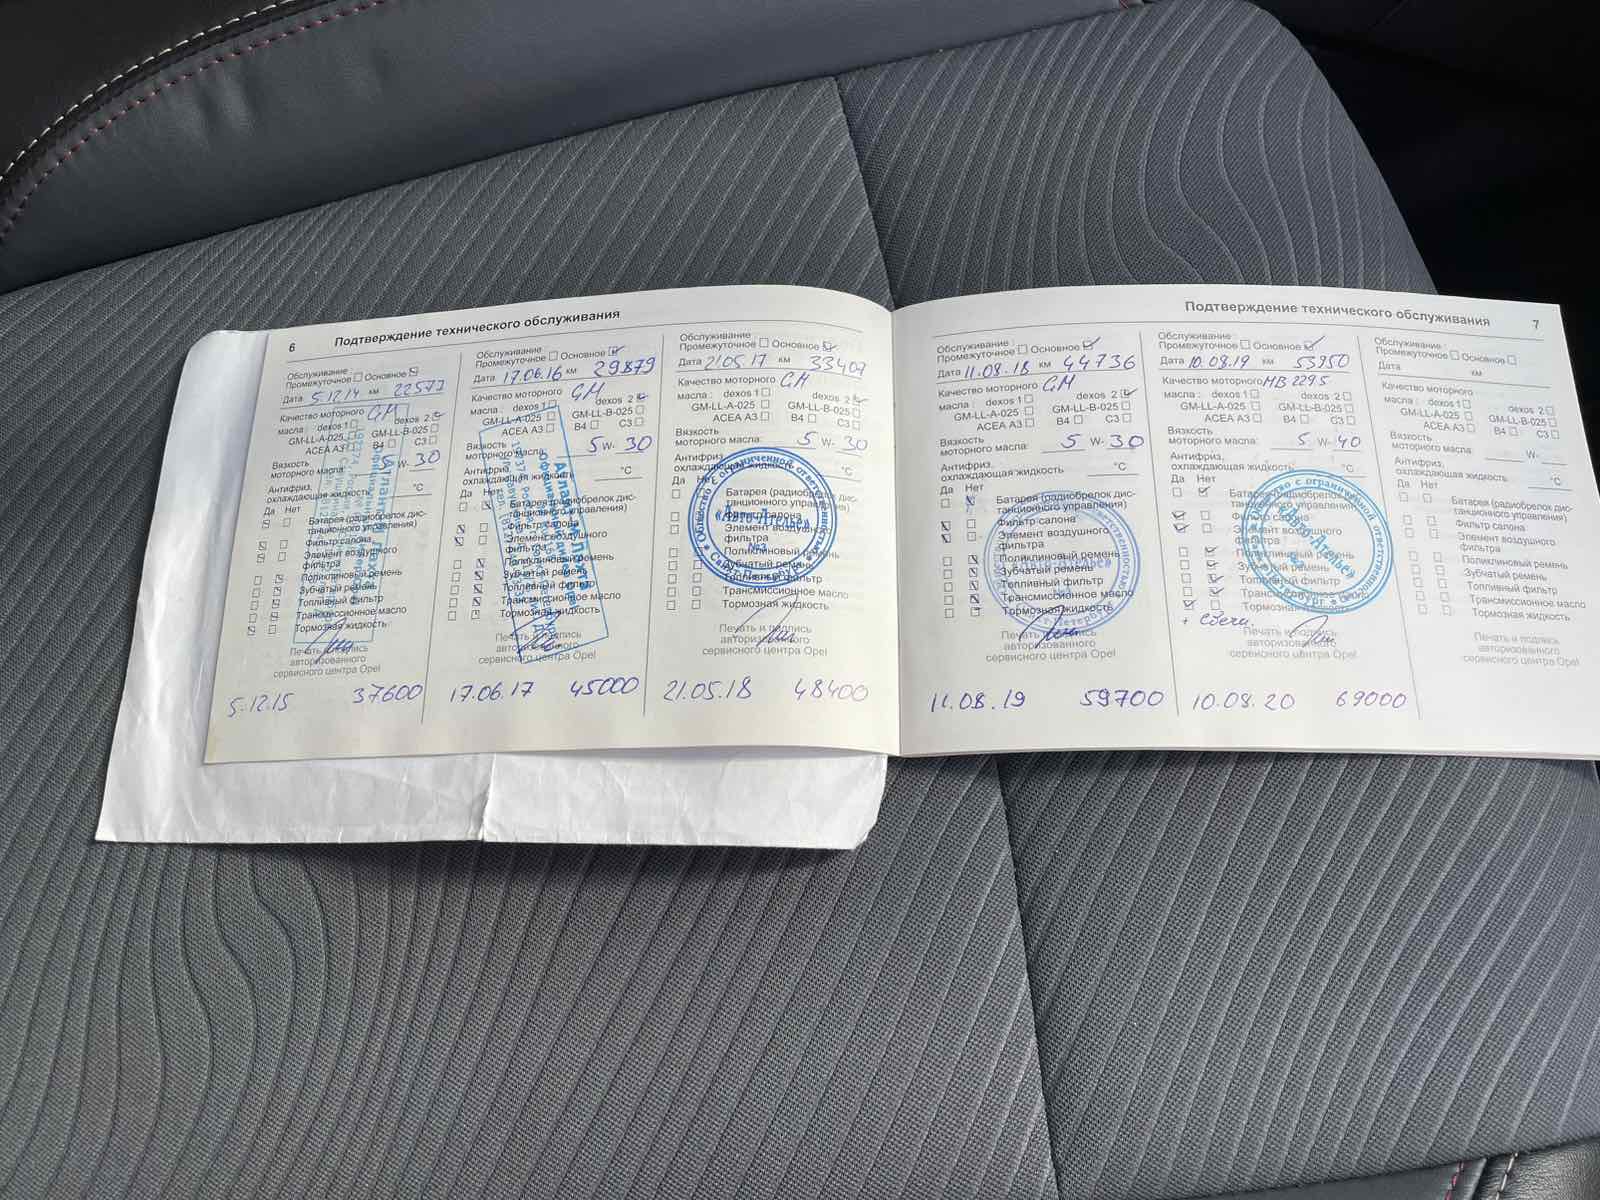 6 Подтверждение технического обслуживания
Обслуживание :
Промежуточное Основное
Дата 5.12.14 км 22577
Качество моторного GM
масла : dexos 1 dexos 2
GM-LL-A-025 GM-LL-B-025
ACEA A3 B4 C3
Вязкость
моторного масла: 5 W- 30
Антифриз,
охлаждающая жидкость °C
Да Нет
Батарея (радиобрелок дис-
танционного управления)
Фильтр салона
Элемент воздушного
фильтра
Поликлиновый ремень
Зубчатый ремень
Топливный фильтр
Трансмиссионное масло
Тормозная жидкость
Печать и подпись
авторизованного
сервисного центра Opel
5.12.15 37600
Обслуживание :
Промежуточное Основное
Дата 17.06.16 км 29879
Качество моторного GM
масла : dexos 1 dexos 2
GM-LL-A-025 GM-LL-B-025
ACEA A3 B4 C3
Вязкость
моторного масла: 5 W- 30
Антифриз,
охлаждающая жидкость °C
Да Нет
Батарея (радиобрелок дис-
танционного управления)
Фильтр салона
Элемент воздушного
фильтра
Поликлиновый ремень
Зубчатый ремень
Топливный фильтр
Трансмиссионное масло
Тормозная жидкость
Печать и подпись
авторизованного
сервисного центра Opel
17.06.17 45000
Обслуживание :
Промежуточное Основное
Дата 21.05.17 км 33407
Качество моторного GM
масла : dexos 1 dexos 2
GM-LL-A-025 GM-LL-B-025
ACEA A3 B4 C3
Вязкость
моторного масла: 5 W- 30
Антифриз,
охлаждающая жидкость °C
Да Нет
Батарея (радиобрелок дис-
танционного управления)
Фильтр салона
Элемент воздушного
фильтра
Поликлиновый ремень
Зубчатый ремень
Топливный фильтр
Трансмиссионное масло
Тормозная жидкость
Общество с ограниченной ответственностью
«Авто-Ателье»
Печать и подпись
авторизованного
сервисного центра Opel
21.05.18 48400
Подтверждение технического обслуживания 7
Обслуживание :
Промежуточное Основное
Дата 11.08.18 км 44736
Качество моторного GM
масла : dexos 1 dexos 2
GM-LL-A-025 GM-LL-B-025
ACEA A3 B4 C3
Вязкость
моторного масла: 5 W- 30
Антифриз,
охлаждающая жидкость °C
Да Нет
Батарея (радиобрелок дис-
танционного управления)
Фильтр салона
Элемент воздушного
фильтра
Поликлиновый ремень
Зубчатый ремень
Топливный фильтр
Трансмиссионное масло
Тормозная жидкость
Печать и подпись
авторизованного
сервисного центра Opel
11.08.19 59700
Обслуживание :
Промежуточное Основное
Дата 10.08.19 км 53950
Качество моторного MB 229.5
масла : dexos 1 dexos 2
GM-LL-A-025 GM-LL-B-025
ACEA A3 B4 C3
Вязкость
моторного масла: 5 W- 40
Антифриз,
охлаждающая жидкость °C
Да Нет
Батарея (радиобрелок дис-
танционного управления)
Фильтр салона
Элемент воздушного
фильтра
Поликлиновый ремень
Зубчатый ремень
Топливный фильтр
Трансмиссионное масло
Тормозная жидкость
+ Свечи.
Печать и подпись
авторизованного
сервисного центра Opel
10.08.20 69000
Обслуживание :
Промежуточное Основное
Дата км
Качество моторного
масла : dexos 1 dexos 2
GM-LL-A-025 GM-LL-B-025
ACEA A3 B4 C3
Вязкость
моторного масла: W-
Антифриз,
охлаждающая жидкость °C
Да Нет
Батарея (радиобрелок дис-
танционного управления)
Фильтр салона
Элемент воздушного
фильтра
Поликлиновый ремень
Зубчатый ремень
Топливный фильтр
Трансмиссионное масло
Тормозная жидкость
Печать и подпись
авторизованного
сервисного центра Opel